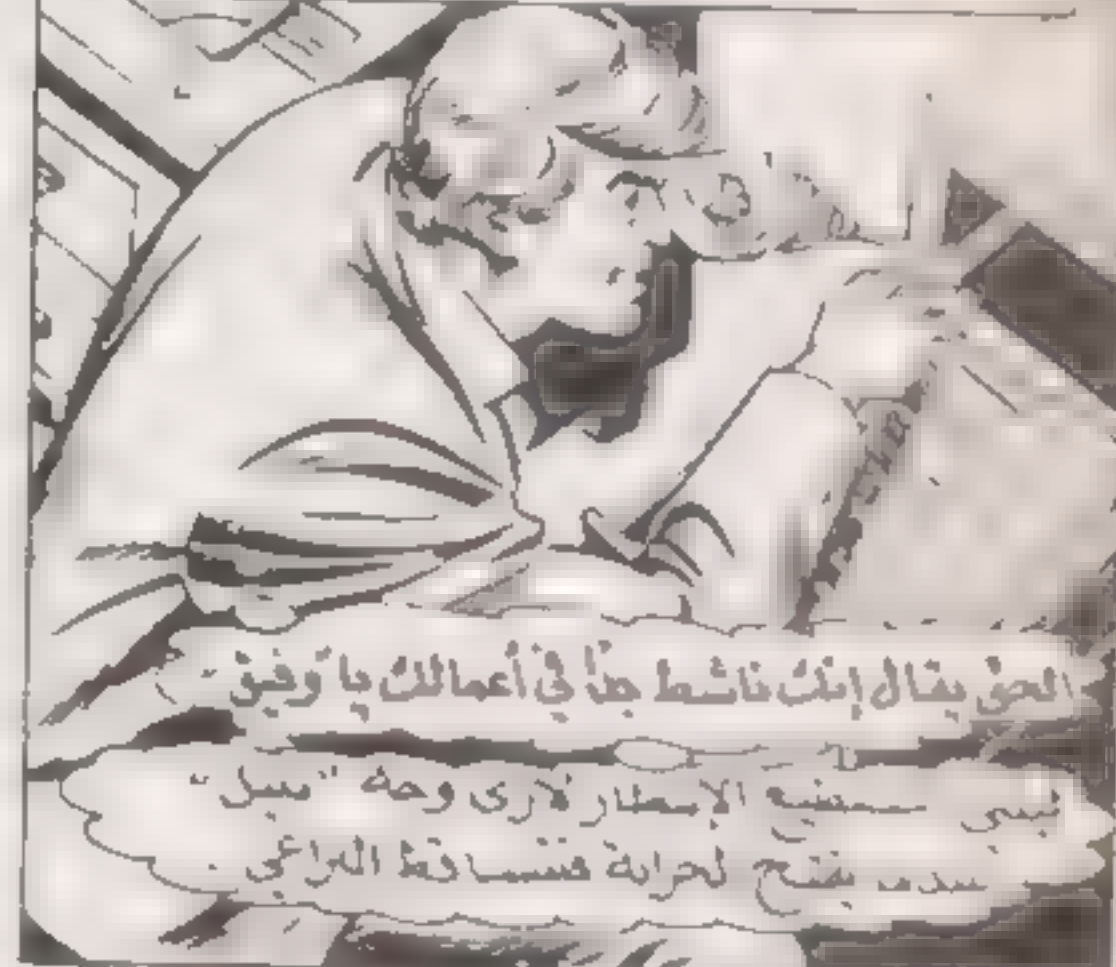 الحق يقال إنك ناشط جداً في أعمالك يا توفيق
الإنتظار لأرى وجه "نبيل"
يفتح لخزانة فتتساقط البراغي